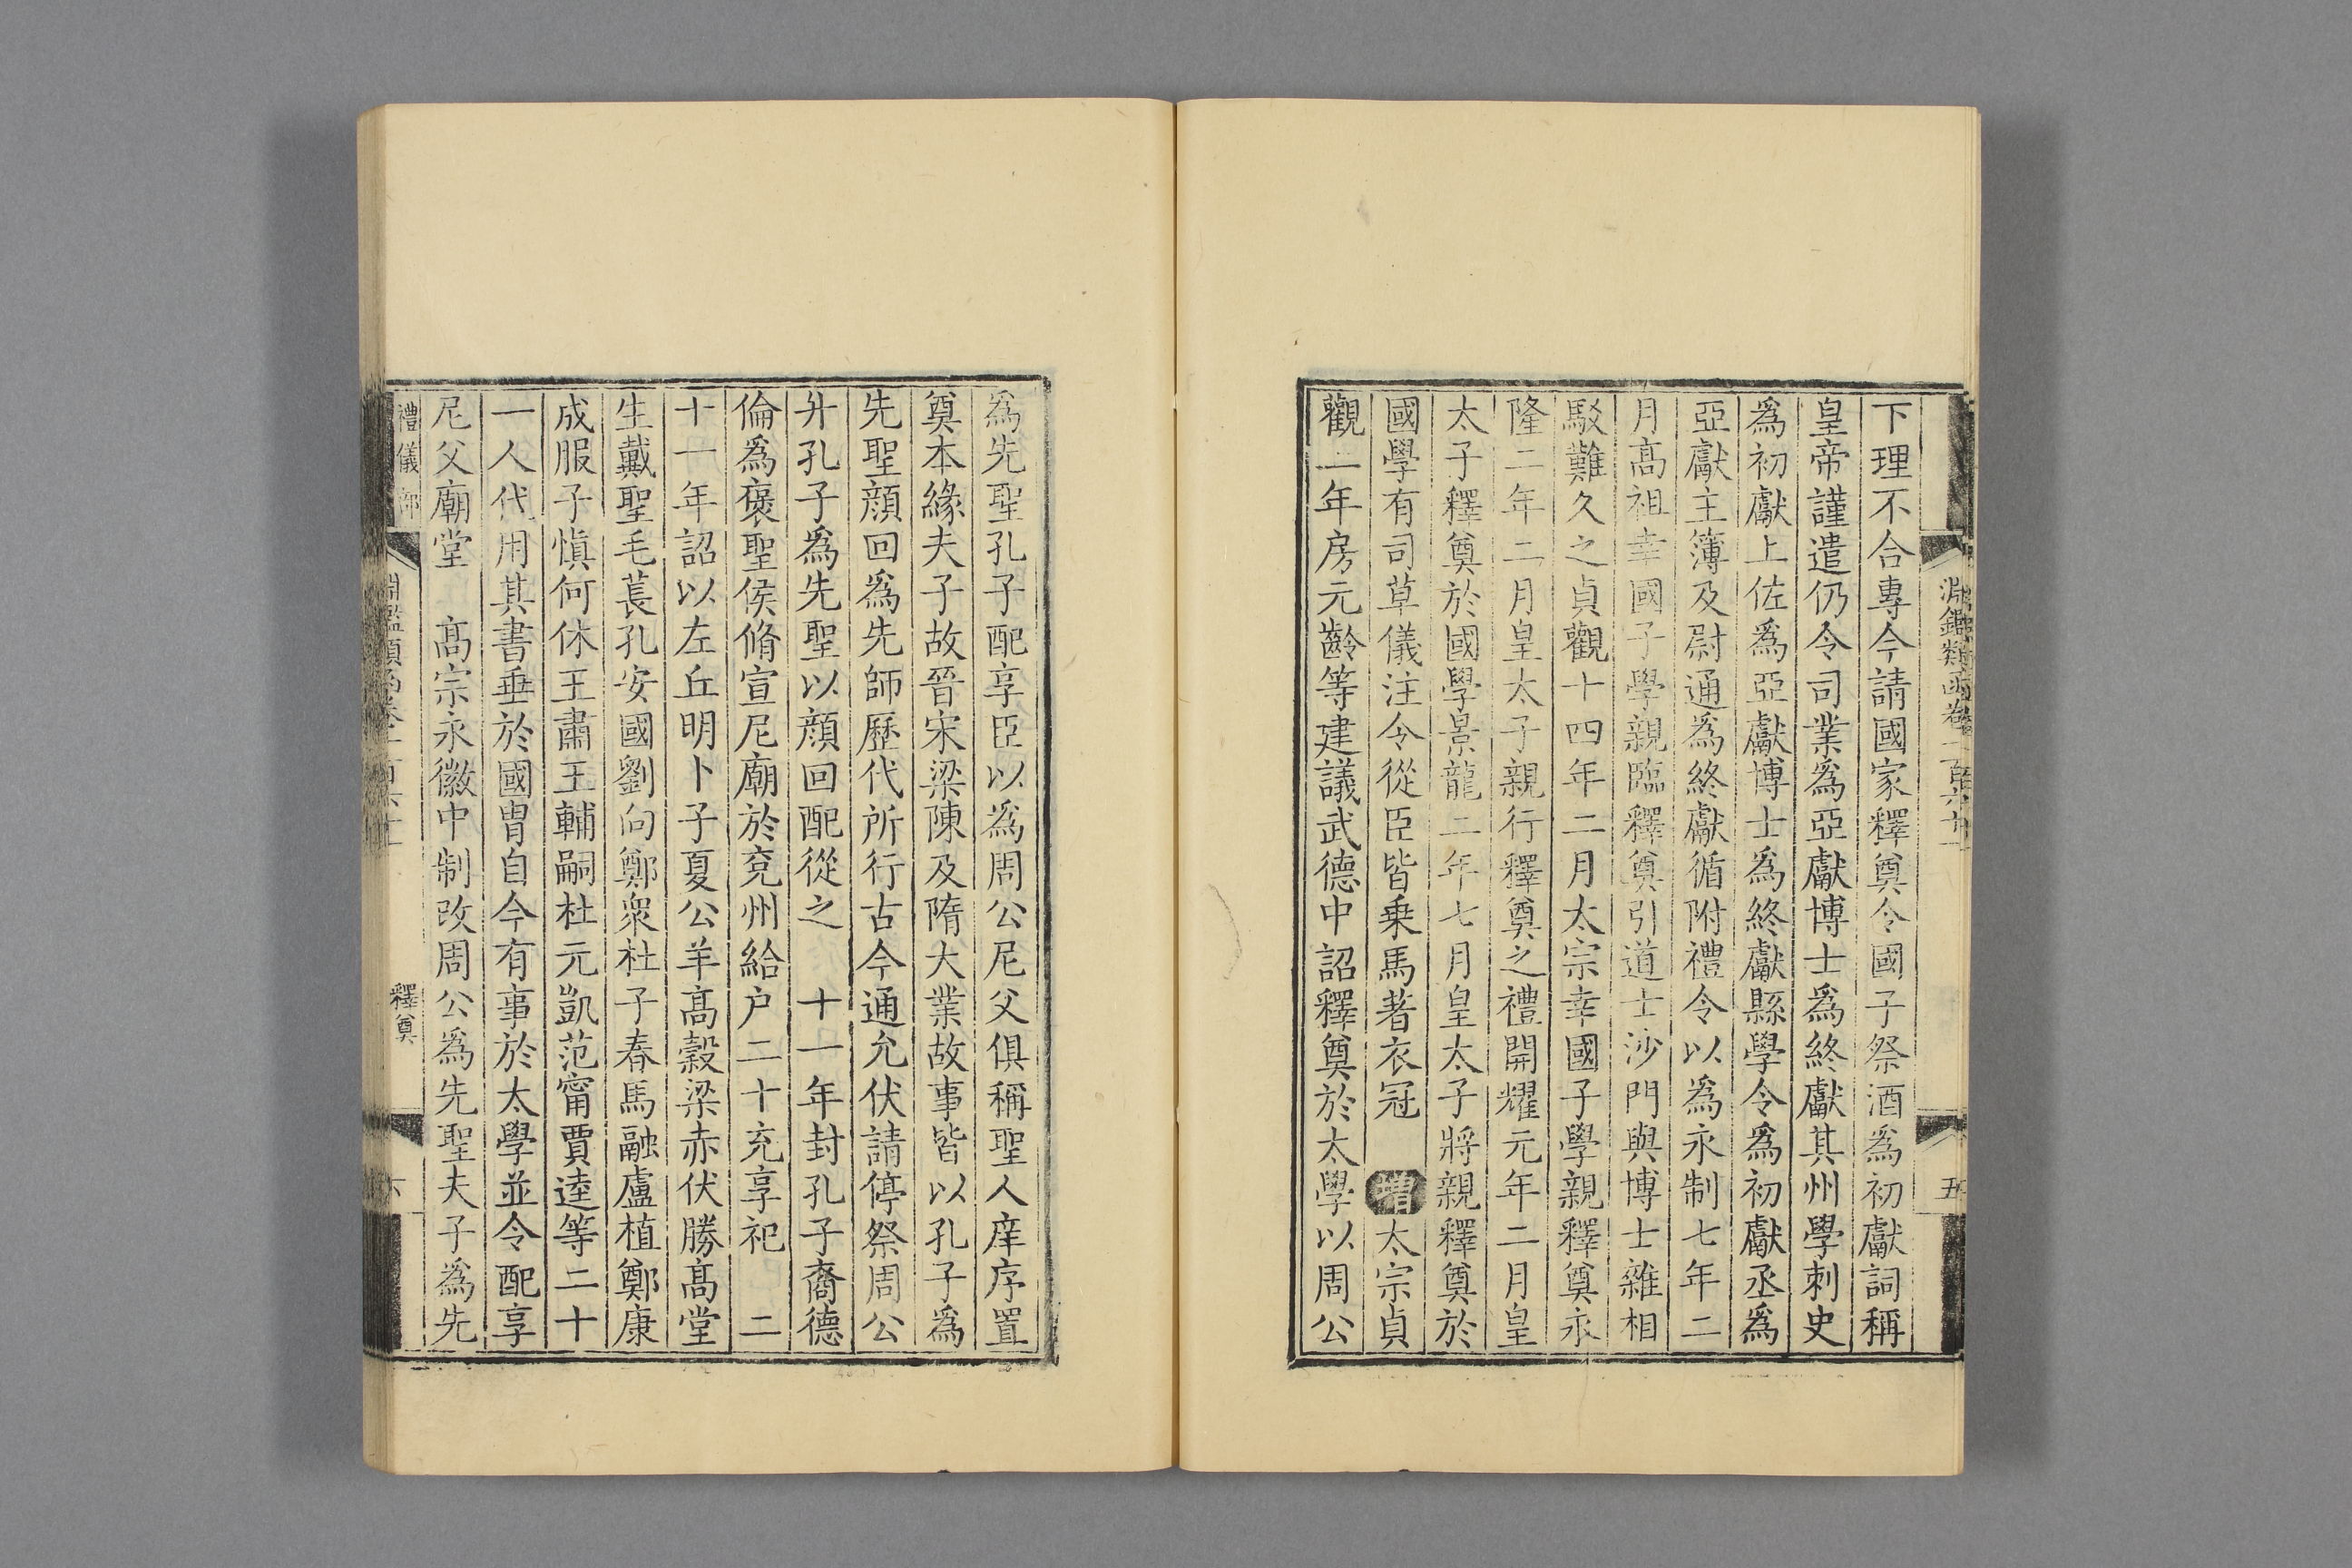 淵鑑類函卷一百六十
五
下理不合專今請國家釋奠令國子祭酒爲初獻詞稱
皇帝謹遣仍令司業爲亞獻博士爲終獻其州學刺史
爲初獻上佐爲亞獻博士爲終獻縣學令爲初獻丞爲
亞獻主簿及尉通爲終獻循附禮令以爲永制七年二
月髙祖幸國子學親臨釋奠引道士沙門與博士雜相
駁難久之貞觀十四年二月太宗幸國子學親釋奠永
隆二年二月皇太子親行釋奠之禮開耀元年二月皇
太子釋奠於國學景龍二年七月皇太子將親釋奠於
國學有司草儀注令從臣皆乗馬著衣冠 增太宗貞
觀二年房元齡等建議武德中詔釋奠於太學以周公
爲先聖孔子配享臣以爲周公尼父俱稱聖人庠序置
奠本緣夫子故晉宋梁陳及隋大業故事皆以孔子爲
先聖顔回爲先師歷代所行古今通允伏請停祭周公
升孔子爲先聖以顔回配從之 十一年封孔子裔德
倫爲襃聖侯脩宣尼廟於兗州給户二十充享祀 二
十一年詔以左丘明卜子夏公羊髙穀梁赤伏勝髙堂
生戴聖毛萇孔安國劉向鄭衆杜子春馬融盧植鄭康
成服子愼何休王肅王輔嗣杜元凱范甯賈逵等二十
一人代用其書垂於國冑自今有事於太學並令配享
尼父廟堂 髙宗永徽中制改周公爲先聖夫子爲先
禮儀部
釋奠
六